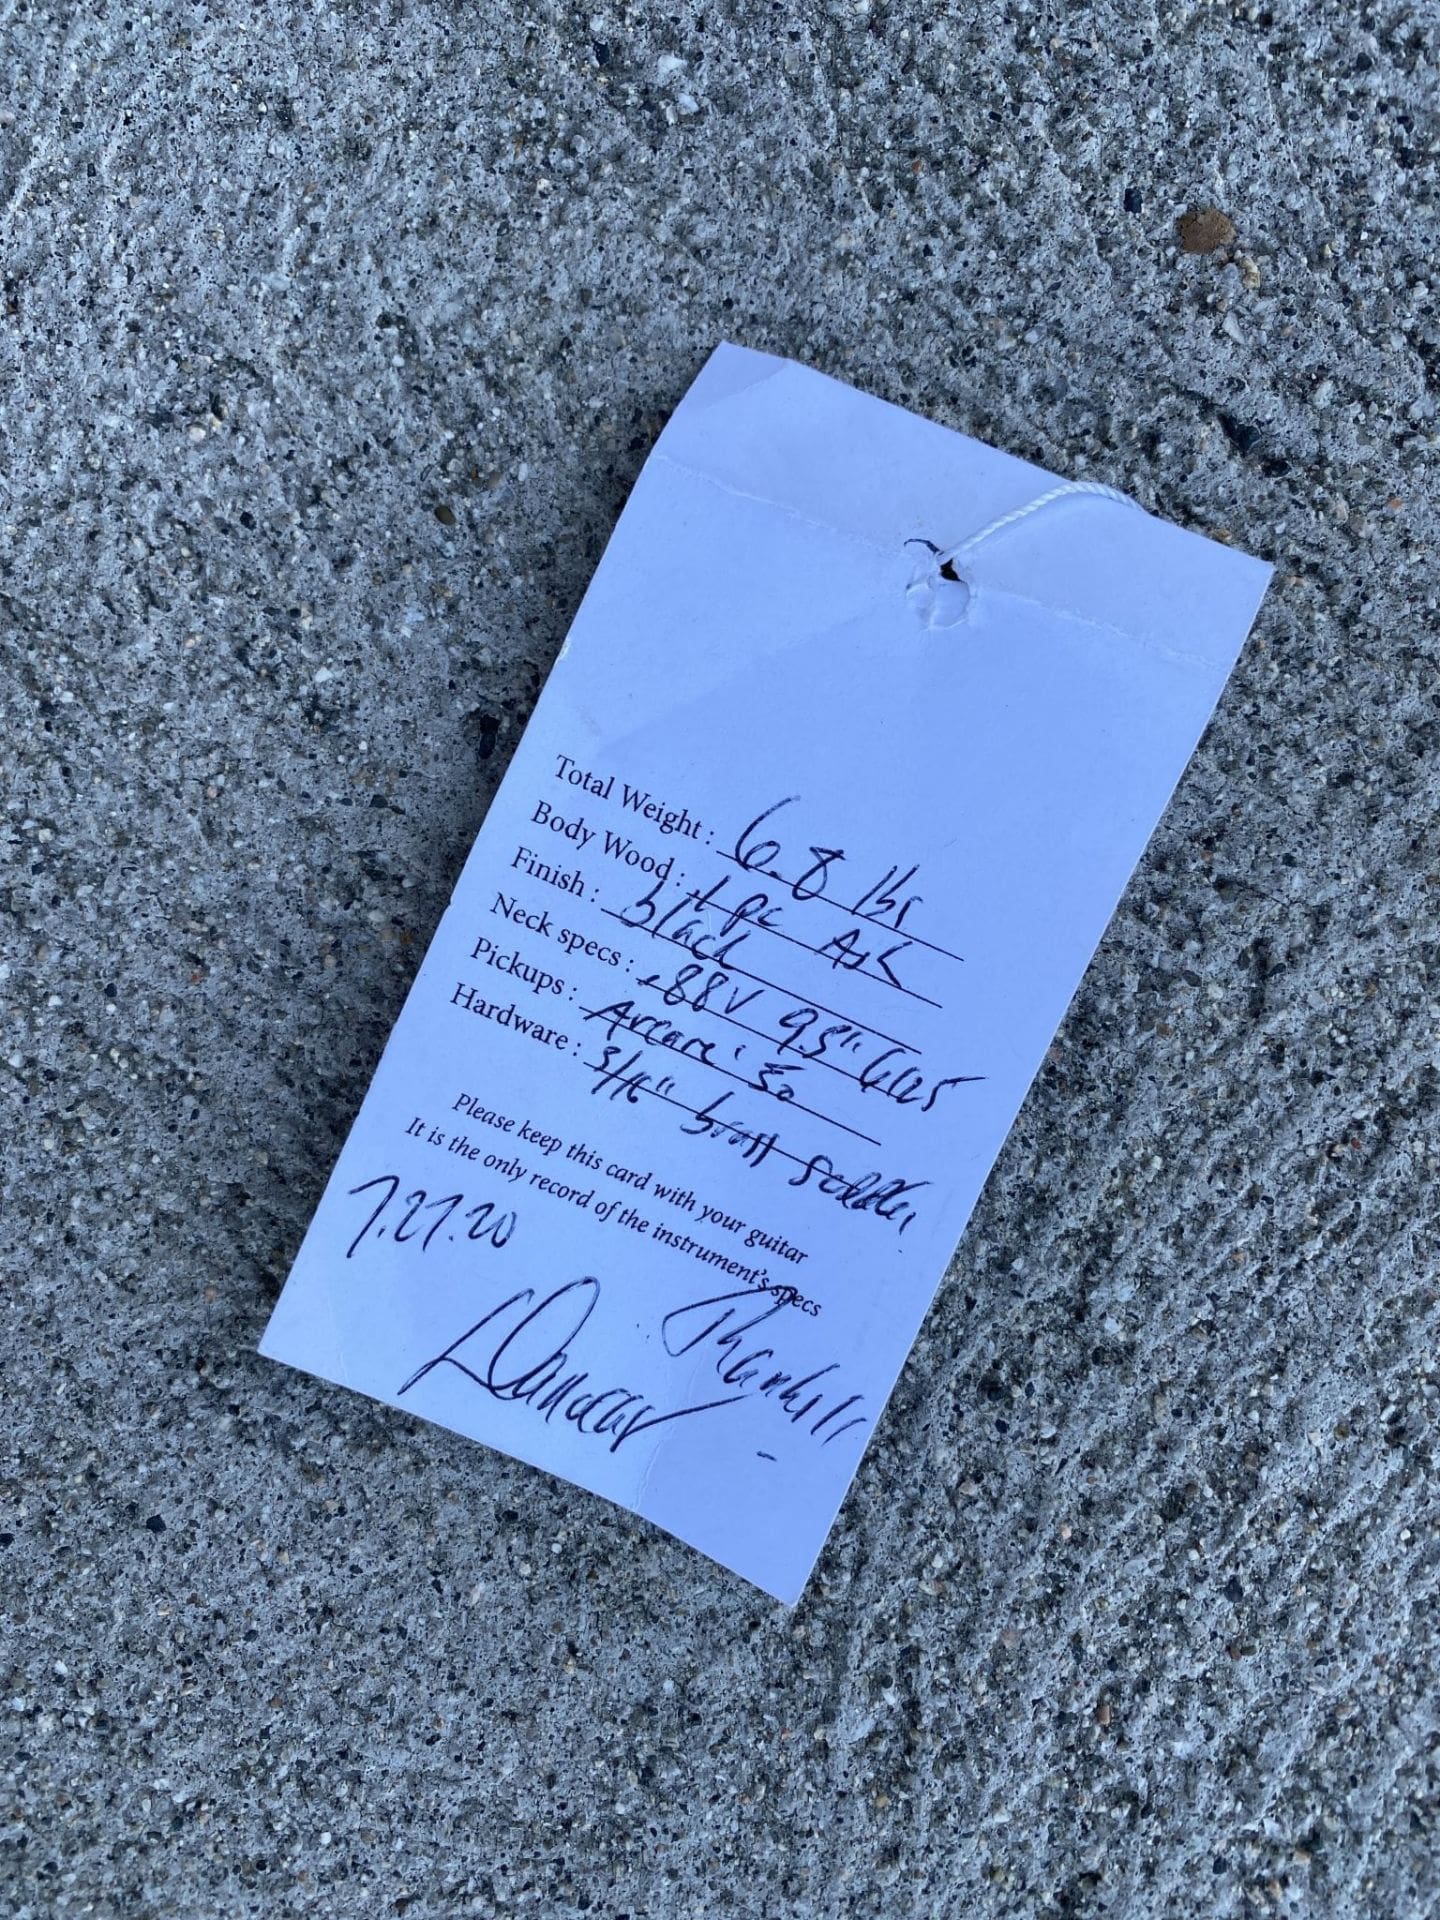 Total Weight : 6.8 lbs
Body Wood : 1 pc Ash
Finish : black
Neck specs : .88 V 9.5" 6105
Pickups : Arcane '50
Hardware : 3/16" brass saddles
Please keep this card with your guitar
It is the only record of the instrument's specs
7.27.20
Thanks!!